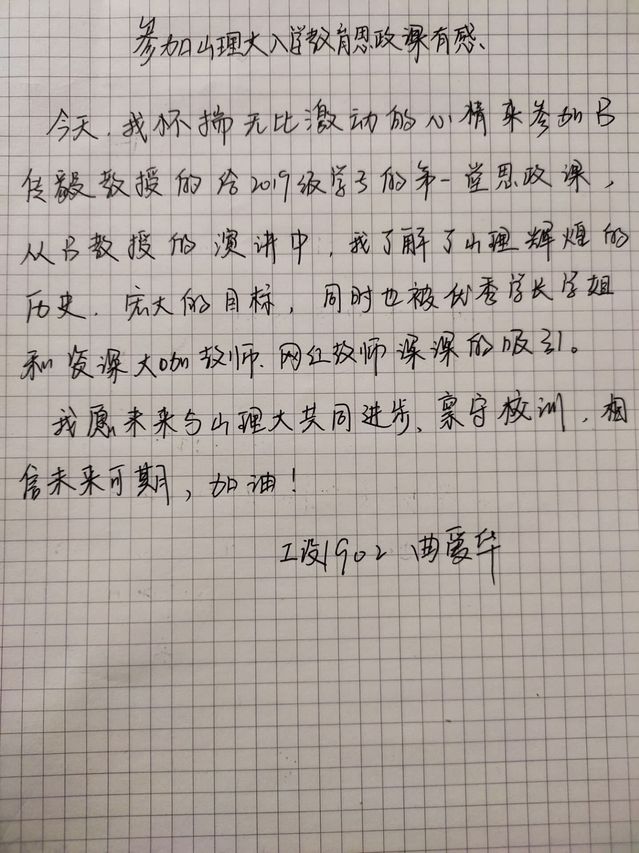 参加山理大入学教育思政课有感
今天,我怀揣无比激动的心情来参加吕
传毅教授的给2019级学子的第一堂思政课,
从吕教授的演讲中,我了解了山理辉煌的
历史、宏大的目标,同时也被优秀学长学姐
和资深大咖教师、网红教师深深的吸引。
我愿未来与山理大共同进步、禀守校训,相
信未来可期,加油!
工设1902 曲爱华